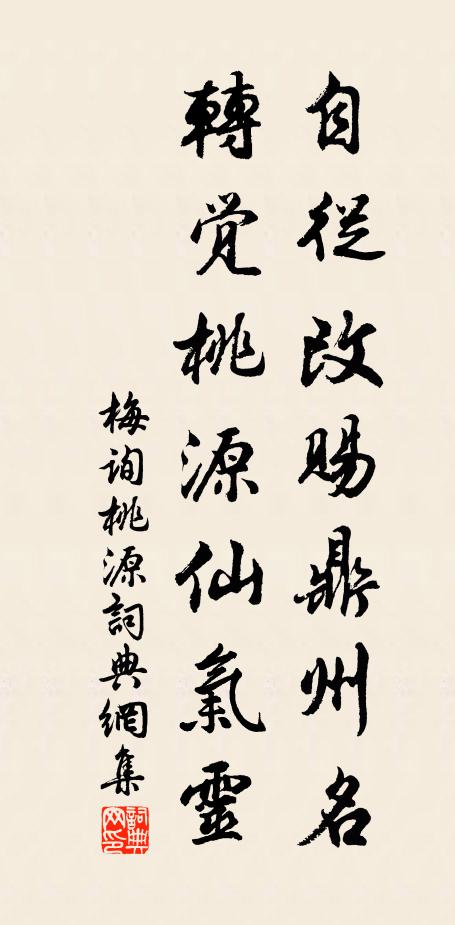 自從改賜鼎州名
轉覺桃源仙氣靈
梅询桃源詞典網集
詞典网印